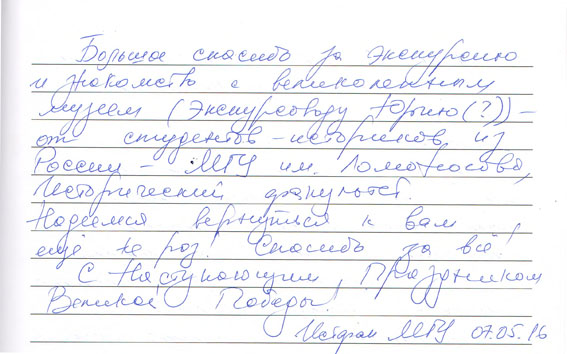 Большое спасибо за экскурсию
и знакомство с великолепным
музеем (Экскурсоводу Юрию(?)) –
от студентов-историков из
России – МГУ им. Ломоносова,
Исторический факультет.
Надеемся вернуться к вам
ещё не раз! Спасибо за всё!
С Наступающим, Праздником
Великой Победы!
Истфак МГУ 07.05.16